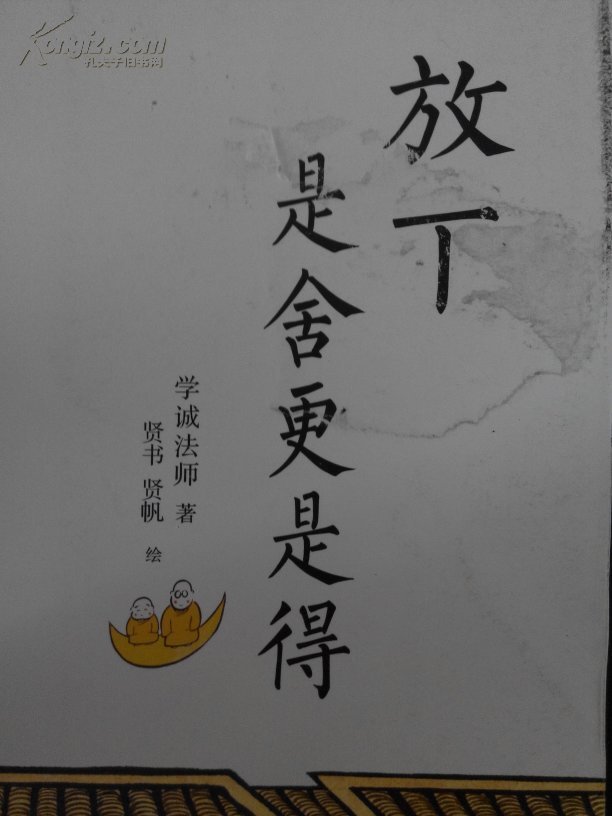 Kongfz.com
孔夫子旧书网
放下
是舍更是得
学诚法师 著
贤书 贤帆 绘